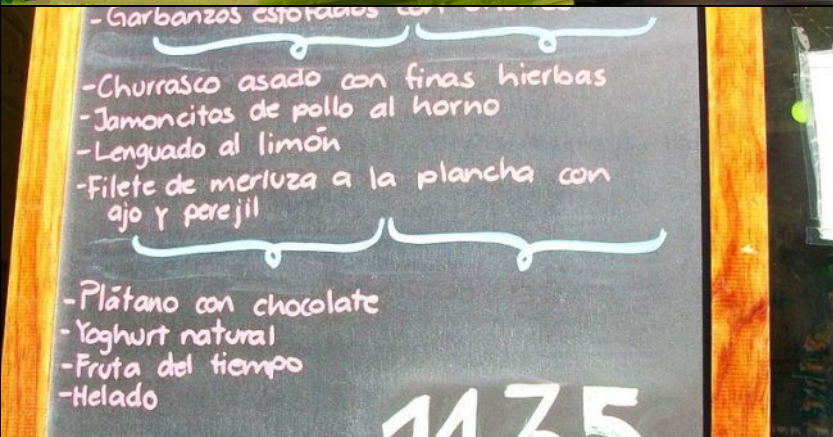 -Garbanzos estofados con
-Churrasco asado con finas hierbas
-Jamoncitos de pollo al horno
-Lenguado al limón
-Filete de merluza a la plancha con
ajo y perejil
-Plátano con chocolate
-Yoghurt natural
-Fruta del tiempo
-Helado